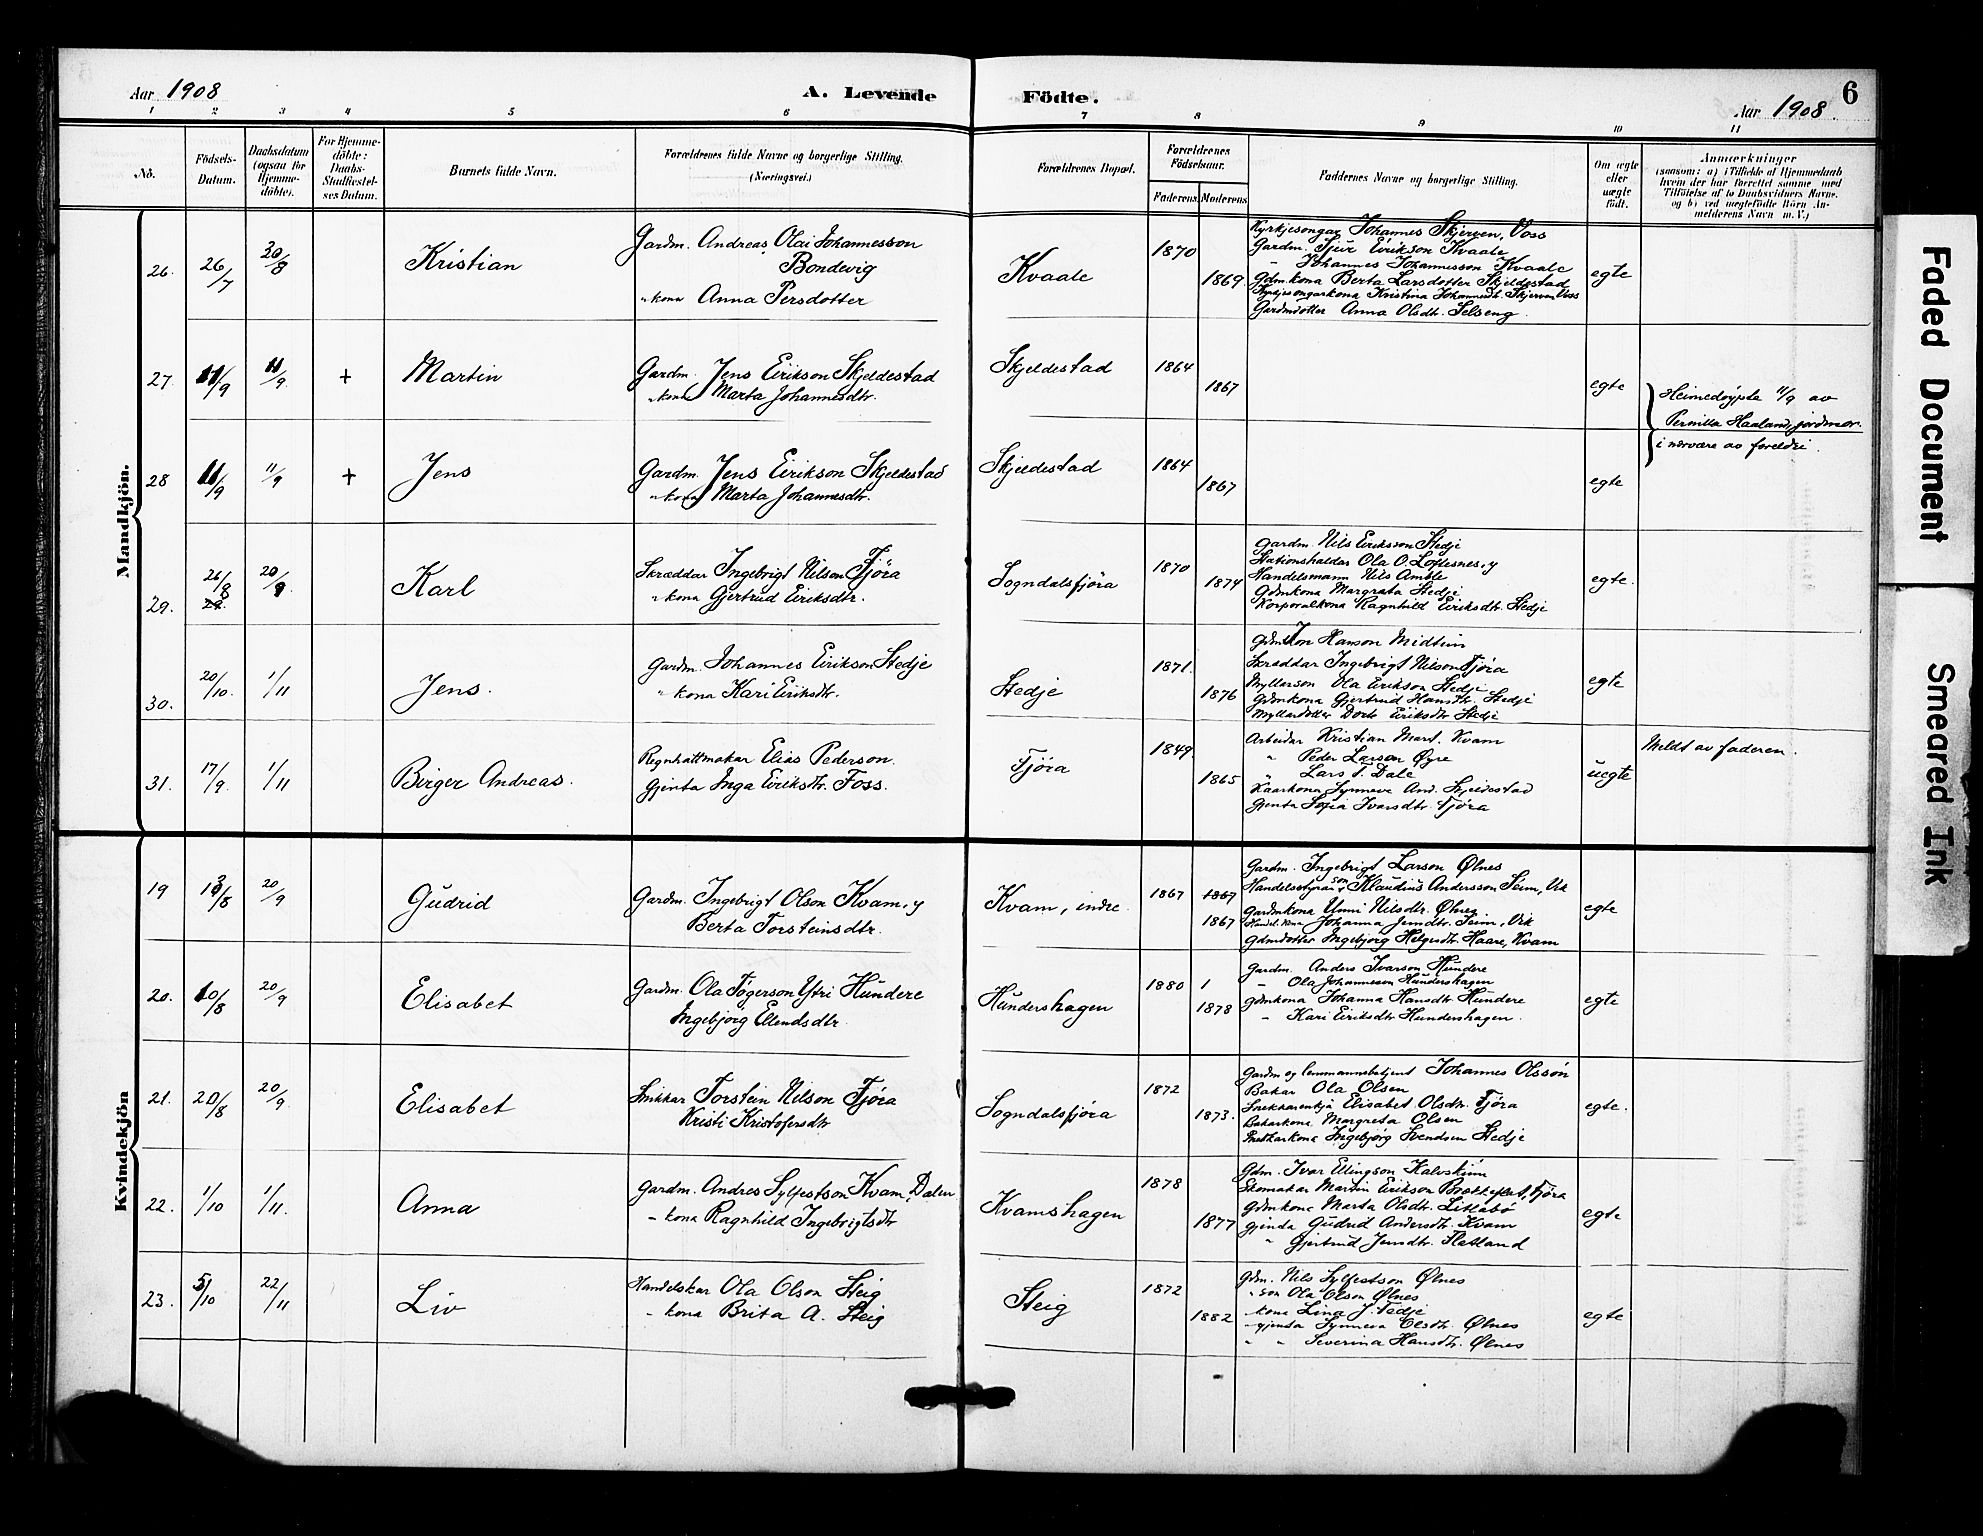 Aar 1908
A. Levende
Födte.
6
Aar 1908
1 2 3 4 5 6 7 8 9 10 11
No.
Födsels-Datum.
Daabsdatum (ogsaa for Hjemmedöbte).
For Hjemmedöbte: Daabs-Stadfæstelses Datum.
Barnets fulde Navn.
Forældrenes fulde Navne og borgerlige Stilling. (Næringsvei.)
Forældrenes Bopæl.
Forældrenes Födselsaar.
Faderens Moderens
Faddernes Navne og borgerlige Stilling.
Om ægte eller uægte födt.
Anmærkninger
(saasom: a) i Tilfælde af Hjemmedaab
hvem der har forrettet samme med
Tilföielse af to Daabsvidners Navne,
og b) ved uægtefödte Börn An-
melderens Navn m. V.)
Mandkjön.
26. 26/7 20/8 Kristian
Gardm. Andreas Olai Johannesson
Bondevig
" kona Anna Persdotter
Kvaale 1870 1869
Kyrkjesongar Johannes Skjerven, Voss
Gardm. Sjur Eirikson Kvaale
" Johannes Johannesson Kvaale
Gdm.kona Berta Larsdotter Skjeldestad
Kyrkjesongarkona Kristina Johannesdt. Skjerven Voss
Gardmdotter Anna Olsdtr. Selseng
egte
27. 11/9 11/9 + Martin
Gardm. Jens Eirikson Skjeldestad
" kona Marta Johannesdtr.
Skjeldestad 1864 1867 egte
Heimedöypte 11/9 av
Pernilla Haaland, jordmor.
i nærvære av foreldri.
28 11/9 11/9 + Jens
Gardm. Jens Eirikson Skjeldestad
" kona Marta Johannesdtr.
Skjeldestad 1864 1867 egte
29. 26/8 20/9 Karl
Skræddar Ingebrigt Nilson Fjöra
" kona Gjertrud Eiriksdtr.
Sogndalsfjöra 1870 1874
Gardm. Nils Eiriksson Stedje
Stationshaldar Ola O. Loftesnes, y
Handelsmann Nils Amble
Gdmkona Margreta Stedje
Korporalkona Ragnhild Eiriksdtr. Stedje
egte.
30. 20/10. 1/11 Jens.
Gardm. Johannes Eirikson Stedje
" kona Kari Eiriksdtr.
Stedje 1871. 1876
Hanson Midtun
Skræddar Ingebrigt Nilson Fjöra
Myllarson Ola Eirikson Stedje
Gdmkona Gjertrud Hansdtr. Stedje
Myllardotter Dorte Eiriksdtr Stedje
egte
31. 17/9. 1/11 Birger Andreas.
Regnhattmakar Elias Pederson.
Gjenta Inga Eiriksdtr. Foss.
Fjöra 1849. 1865
Arbeidar Kristian Mart. Kvam
" Peder Larson Øyre
" Lars T. Dale
Kaarkona Synneva And. Skjeldestad
Gjenta Sofia Ivarsdtr. Fjöra
uegte
Meldt av faderen.
Kvindekjön
19 13/8 20/9 Gudrid
Gardm. Ingebrigt Olson Kvam, y
Berta Torsteinsdtr.
Kvam, indre. 1867 1867 1867
Gardm. Ingebrigt Larson Ølnes
Klaudius Andersson Seim, Vik
Gardmkona Unni Nilsdtr. Ølnes
Handel. kona Johanna Jensdtr. Seim, Vik
Gdmdotter Ingebjörg Helgesdtr. Haare, Kvam
egte
20. 10/8 20/9 Elisabet
Gardm. Ola Tögerson Ytri Hundere
Ingebjörg Ellendsdtr.
Hundershagen 1880 1 1878
Gardm. Anders Ivarson Hundere
" Ola Johannesson Hundershagen
gdmkona Johanna Hansdtr Hundere
" Kari Eiriksdtr Hundershagen.
egte
21. 20/8 20/9 Elisabet
Snikkar Torstein Nilson Fjöra
Kristi Kristofersdtr
Sogndalsfjöra 1872 1873.
Gardm og lensmannsbetjent Johannes Olsson
Bakar Ola Olsen
Snekkarenkja Elisabet Olsdtr. Fjöra
Bakarkona Margreta Olsen
Ingebjörg Svendsen Stedje
egte.
22. 1/10 1/11. Anna
Gardm. Andres Sylfestson Kvam, Dalen
" kona Ragnhild Ingebrigtsdtr
Kvamshagen 1878 1877
Gdm. Ivar Ellingson Kalvskinn
Skomakar Martin Eirikson Brekkeflat, Fjöra
Gdmkona Marta Olsdtr. Litlabö
gjenta Gudrid Andersdtr. Kvam
" Gjertrud Jensdtr. Flatland
egte
23. 5/10 22/11 Liv
Handelskar Ola Olson Steig
" kona Brita A. Steig
Steig 1872 1882
Gdm. Nils Sylfestson Ølnes
" son Ola Olson Ølnes
" kona Lina J. Fedje
" gjenta Synneva Olsdtr. Ølnes
" " Severina Hansdtr. Ølnes
egte
Faded Document
Smeared Ink